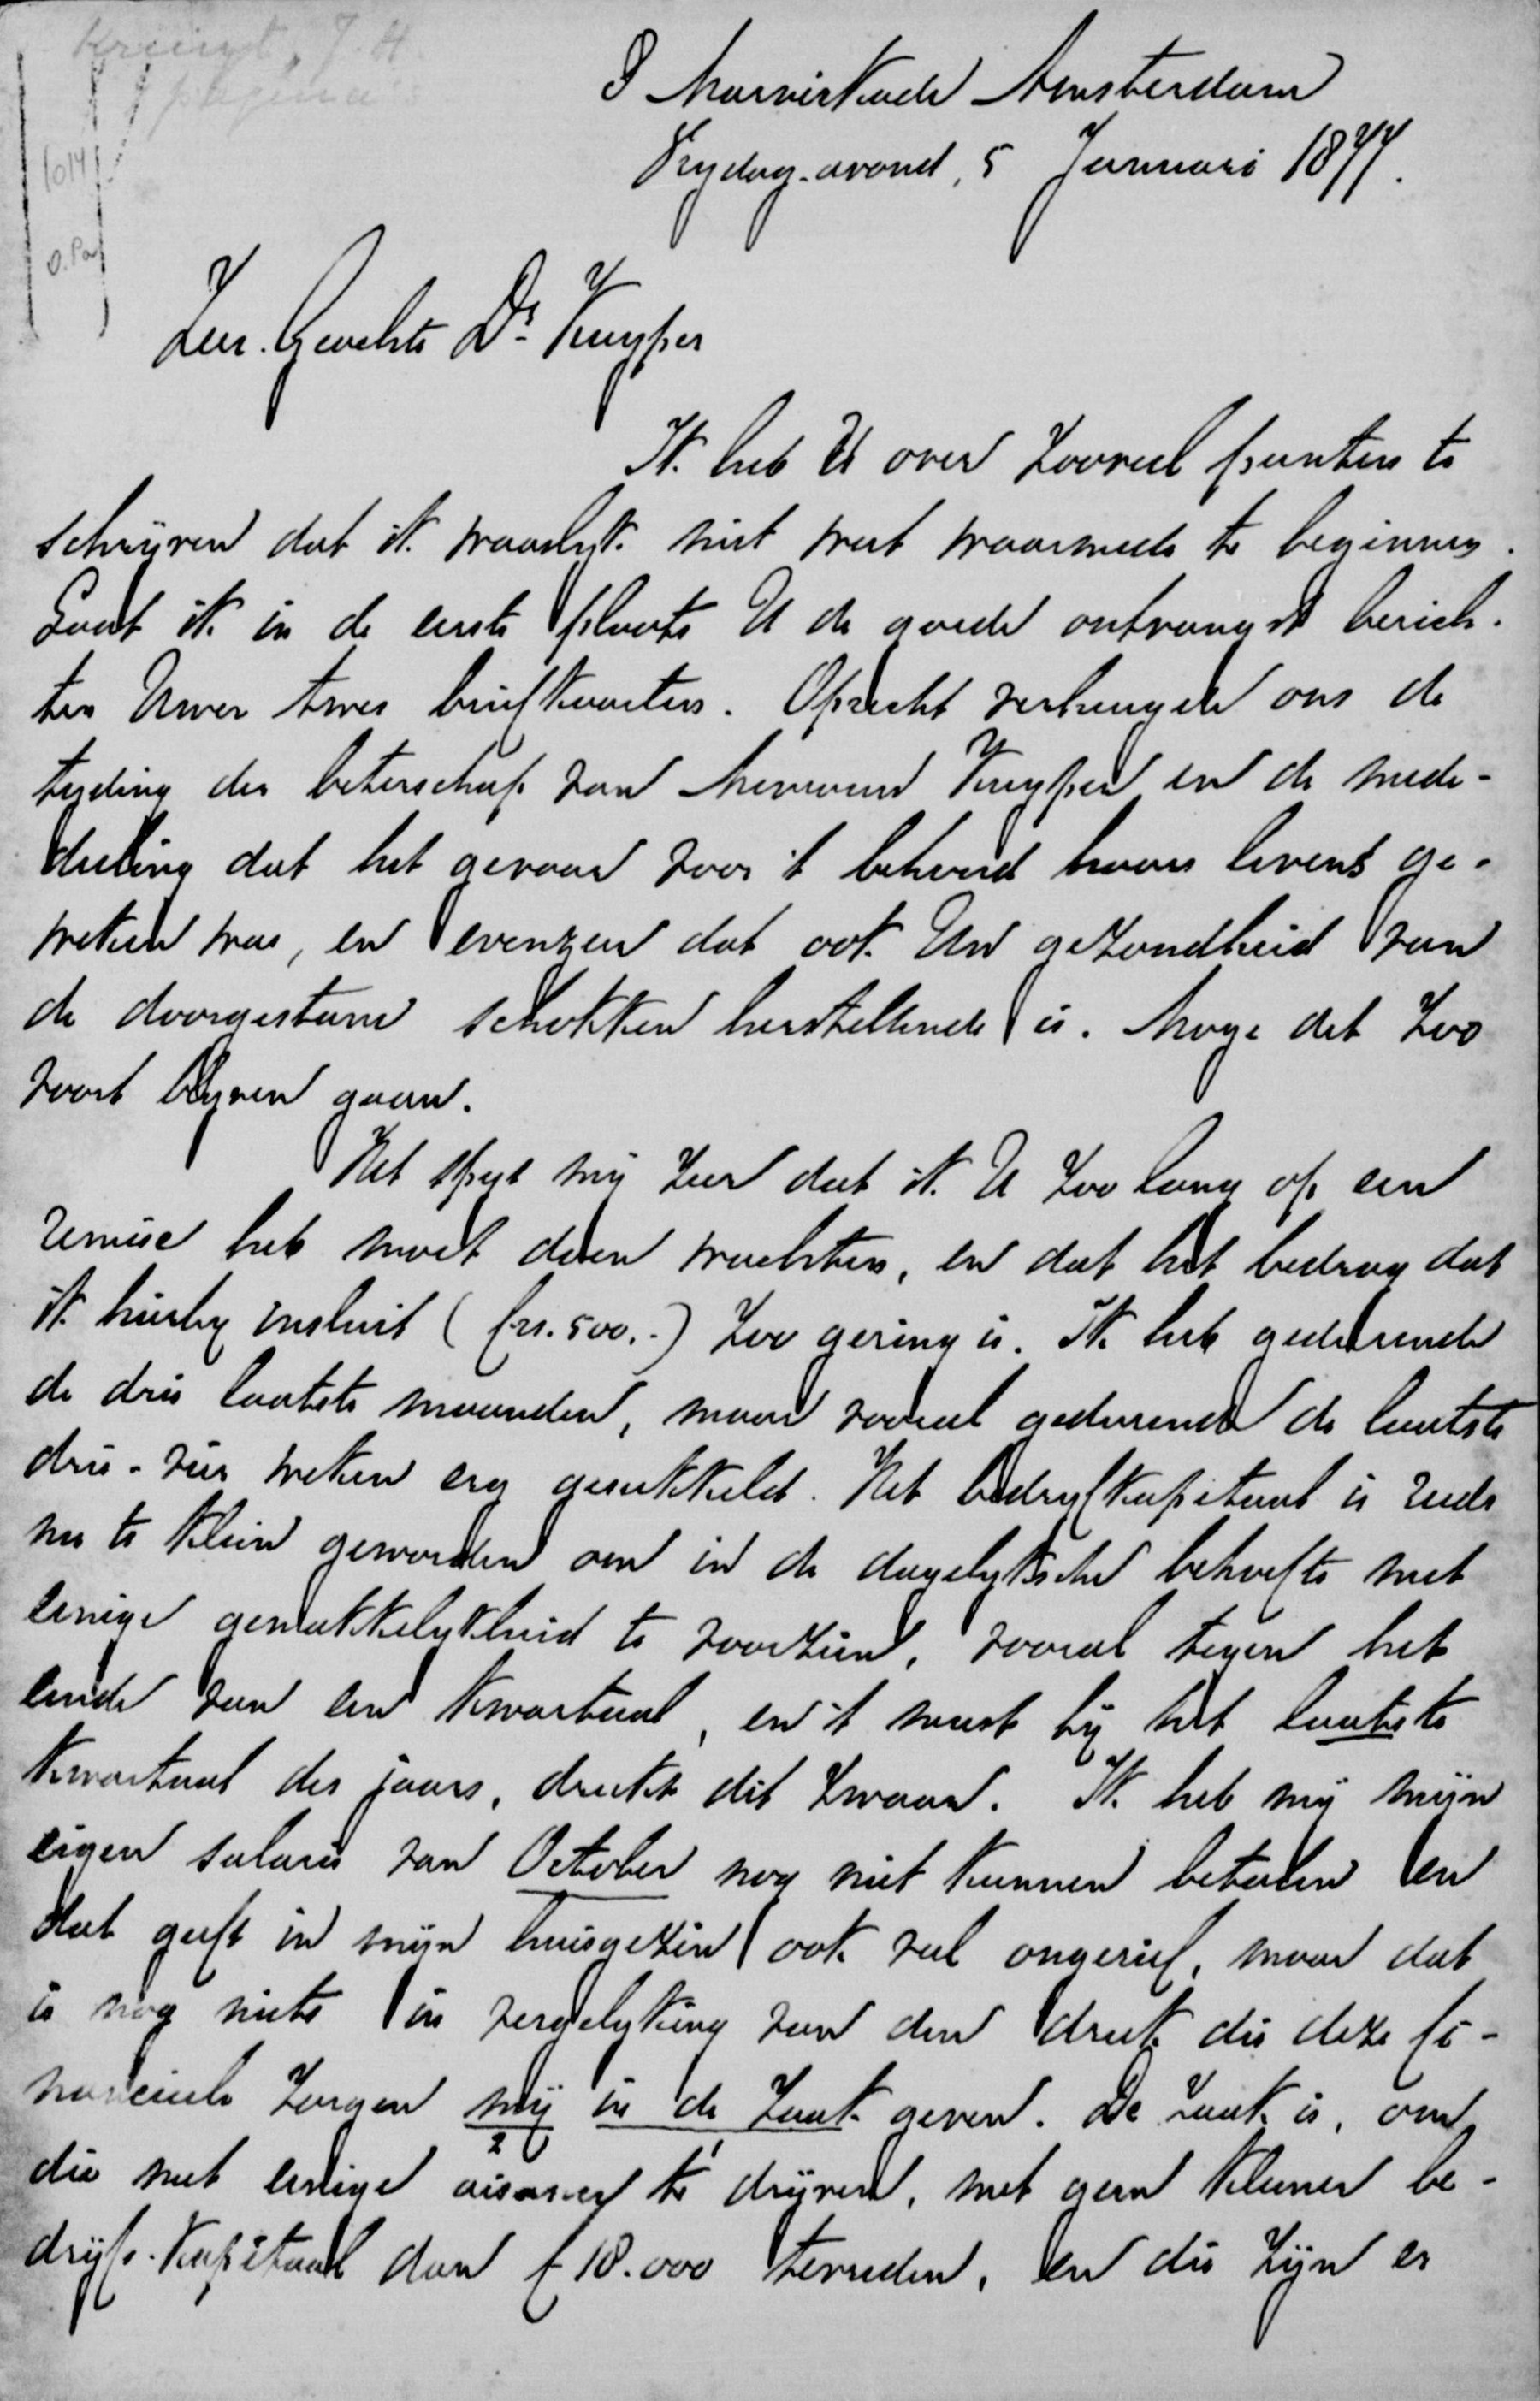 Kruijt, J. H.
pagina's
1014
O. Par
8 Marnixkade Amsterdam
Vrydag-avond, 5 Januari 1877.
Zeer Geachte Dr. Kuyper
Ik heb U over zooveel punten te
schrijven dat ik waarlyk niet weet waarmede te beginnen.
Laat ik in de eerste plaats U de goede ontvangst berich-
ten Uwer twee briefkaarten. Oprecht verheugde ons de
tyding der beterschap van Mevrouw Kuyper en de mede-
deeling dat het gevaar voor 't behoud haars levens ge-
weken was, en evenzeer dat ook Uw gezondheid van
de doorgestane schokken herstellende is. Moge dat zoo
voort blyven gaan.
Het spyt mij zeer dat ik U zoo lang op een
remise heb moet doen wachten, en dat het bedrag dat
ik hierby insluit (frs. 500.-) zoo gering is. Ik heb gedurende
de drie laatste maanden, maar vooral gedurende de laatste
drie-vier weken erg gesukkeld. Het bedryfkapitaal is reeds
nu te klein geworden om in de dagelyksche behoefte met
eenige gemakkelykheid te voorzien, vooral tegen het
einde van een kwartaal, en 't meest bij het laatste
kwartaal des jaars, drukt dit zwaar. Ik heb mij mijn
eigen salaris van October nog niet kunnen betalen en
dat geeft in mijn huisgezin ook veel ongerief, maar dat
is nog niets in vergelyking van den druk die deze fi-
nancieele zorgen mij in de zaak geven. De zaak is, om
die met eenige aisance te drijven, met geen kleiner be-
drijfs-kapitaal dan f 18.000 tevreden, en die zijn er